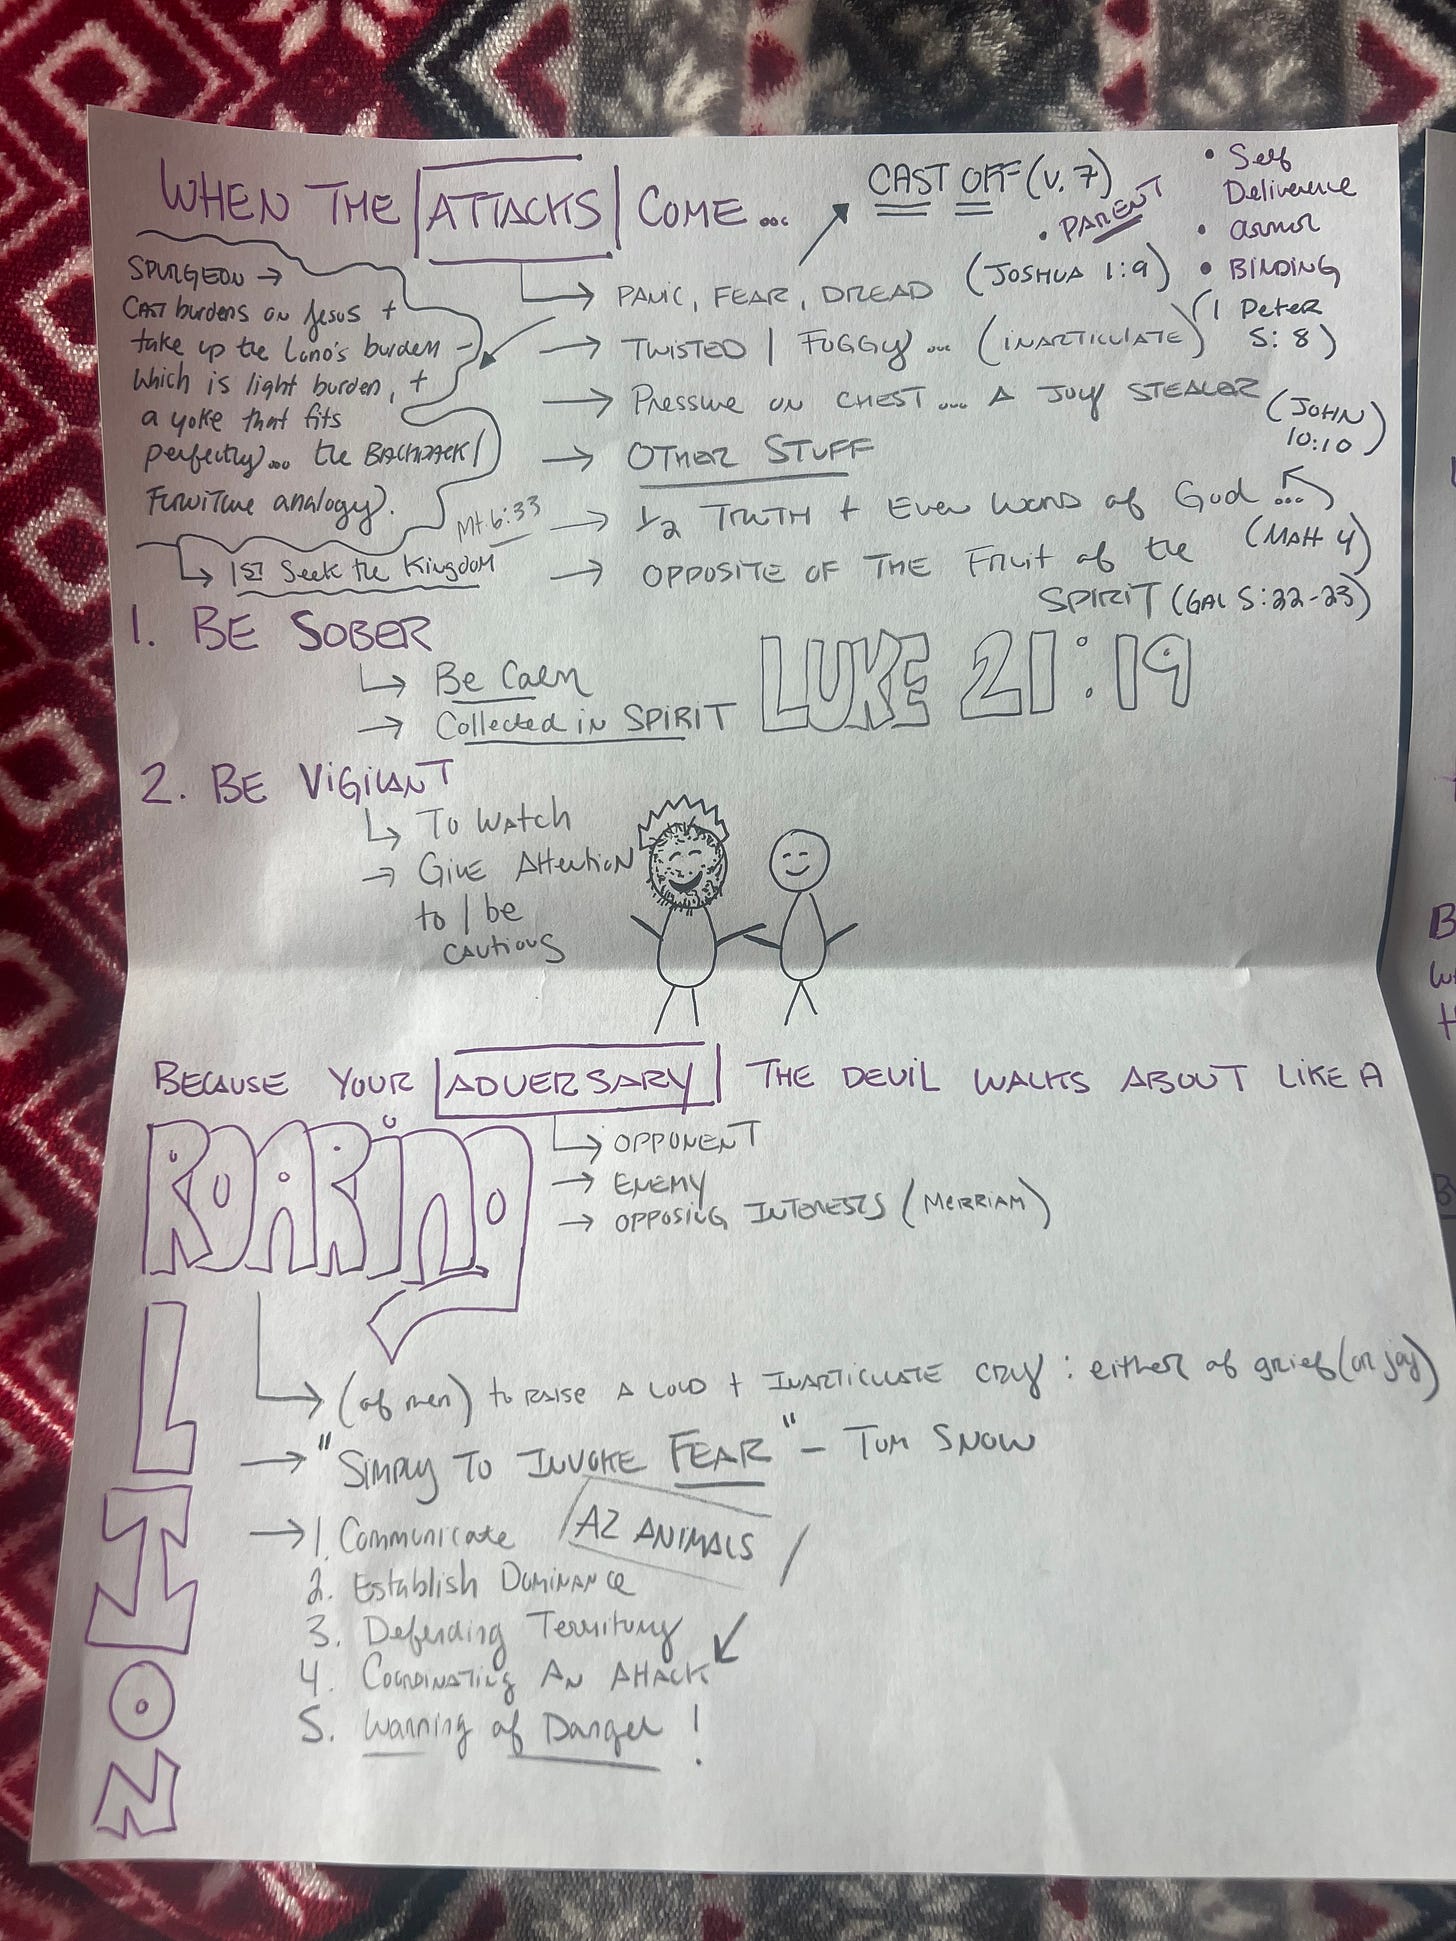 WHEN THE ATTACKS COME...
CAST OFF (v. 7)
• PARENT
• Self
Deliverence
• armor
• BINDING
SPURGEON →
CAST burdens on Jesus +
take up the Lord's burden -
which is light burden, +
a yoke that fits
perfectly... the BACKPACK/
Furniture analogy.
Mt. 6:33
↳ 1st Seek the Kingdom
→ PANIC, FEAR, DREAD (JOSHUA 1:9)
→ TWISTED / FOGGY... (INARTICULATE) (1 Peter
5:8)
→ Pressure on CHEST... A JOY STEALER (JOHN
10:10)
→ OTHER STUFF
→ 1/2 TRUTH + Even Words of God...
(Matt 4)
→ OPPOSITE OF THE Fruit of the
SPIRIT (GAL 5:22-23)
1. BE SOBER
↳ Be Calm
→ Collected in SPIRIT
LUKE 21:19
2. BE VIGILANT
↳ To Watch
→ Give Attention
to / be
cautious
BECAUSE YOUR ADVERSARY THE DEVIL WALKS ABOUT LIKE A
ROARING
↳ OPPONENT
→ ENEMY
→ OPPOSING INTERESTS (MERRIAM)
LION
↳ (of men) to RAISE A LOUD + INARTICULATE CRY: either of grief (or joy)
→ "SIMPLY TO INVOKE FEAR" - TOM SNOW
→ 1. Communicate
AZ ANIMALS
2. Establish DOMINANCE
3. Defending Territory
4. COORDINATING AN ATTACK
5. Warning of Danger!